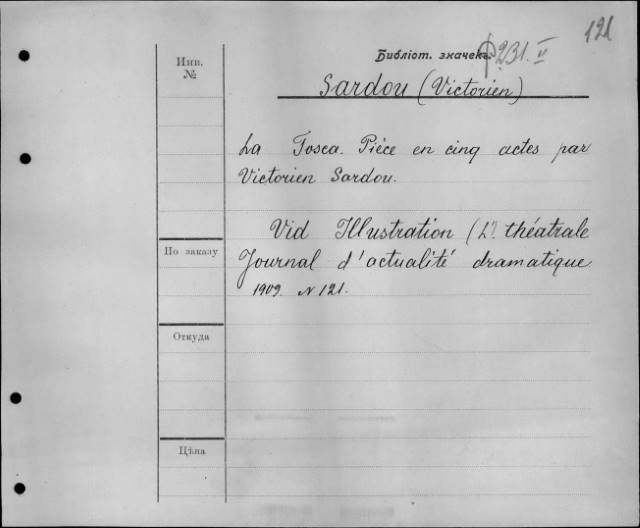 121
Библіот. значекъ Ф231.II
Sardou (Victorien)
Инв.
№
La Tosca. Pièce en cinq actes par
Victorien Sardou.
Vid Illustration (L') théatrale
Journal d'actualité dramatique
1909. N 121.
По заказу
Откуда
Цѣна